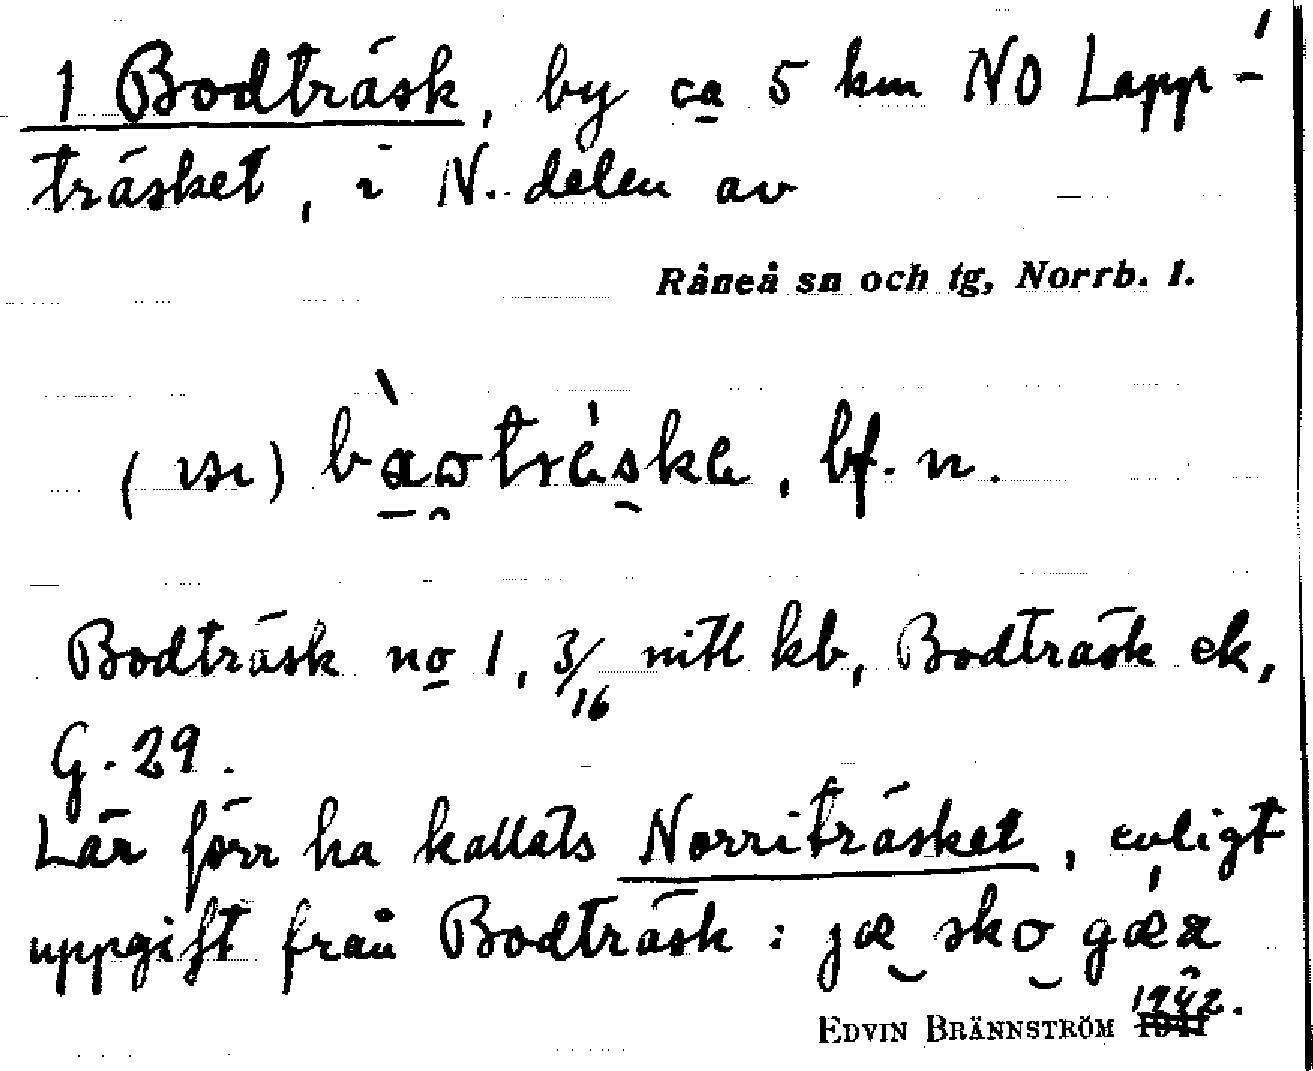 1 Bodträsk, by ca 5 km NO Lapp-
träsket, i N. delen av
Råneå sn och tg, Norrb. l.
bf. n.
Bodträsk no 1, 3/16 mtl kb, Bodträsk ek,
G. 29.
Lär förr ha kallats Norriträsket, enligt
uppgift från Bodträsk:
EDVIN BRÄNNSTRÖM 1942.